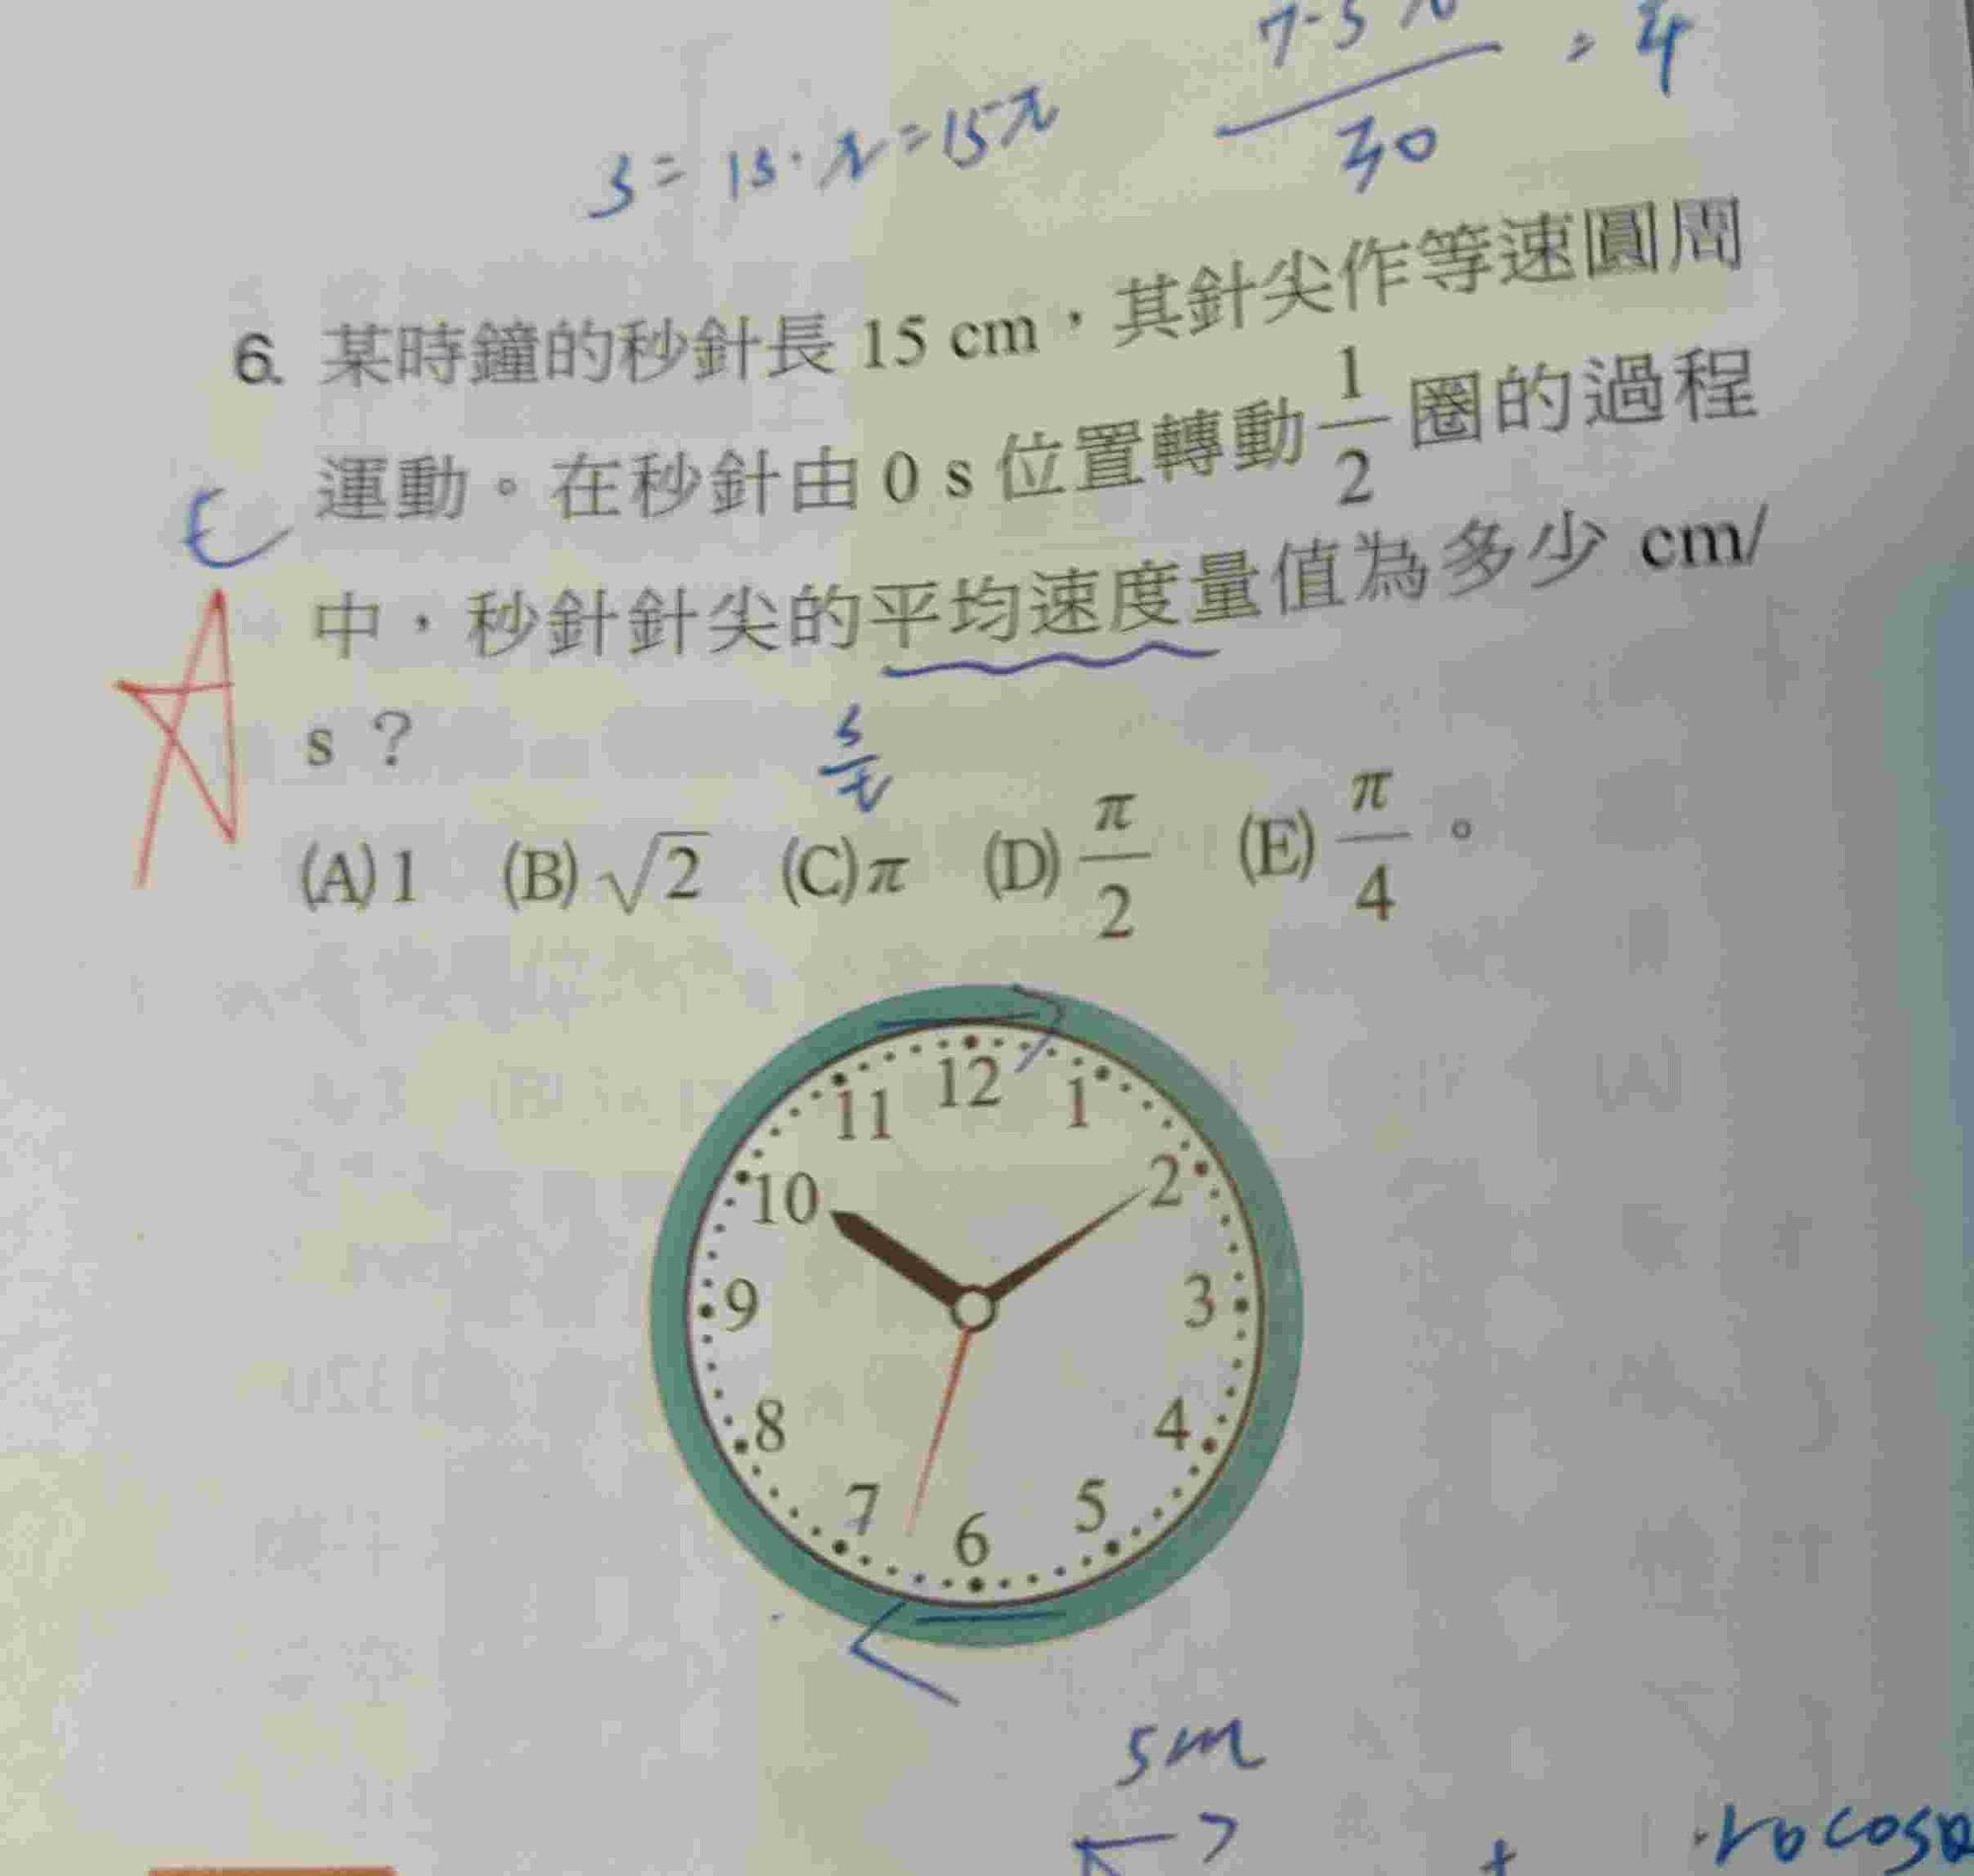 7.5π
/30 = π/4
S = 15·π = 15π
6. 某時鐘的秒針長 15 cm，其針尖作等速圓周
運動。在秒針由 0 s 位置轉動 1/2 圈的過程
中，秒針針尖的平均速度量值為多少 cm/
s ？
S/t
(A) 1 (B) √2 (C) π (D) π/2 (E) π/4 。
12
11 1
10 2
9 3
8 4
7 5
6
5m
+ 10cosθ